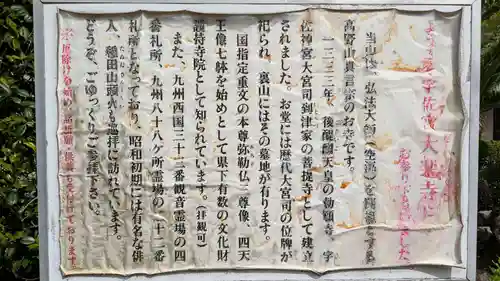 ようこそ宇佐宮大楽寺に
お参り下さいました。
当山は、弘法大師(空海)を開祖とする
高野山真言宗のお寺です。
一三三三年、後醍醐天皇の勅願寺、宇
佐神宮大宮司到津家の菩提寺として建立
されました。お堂には歴代大宮司の位牌が
祀られ、裏山にはその墓地が有ります。
国指定重文の本尊弥勒仏三尊像、四天
王像七体を始めとして県下有数の文化財
護持寺院として知られています。(拝観可)
また、九州西国三十三観音霊場の四
番札所、九州八十八ヶ所霊場の二十二番
札所となっており、昭和初期には有名な俳
人、種田山頭火も巡拝に訪れています。
どうぞ、ごゆっくりご参拝下さい。